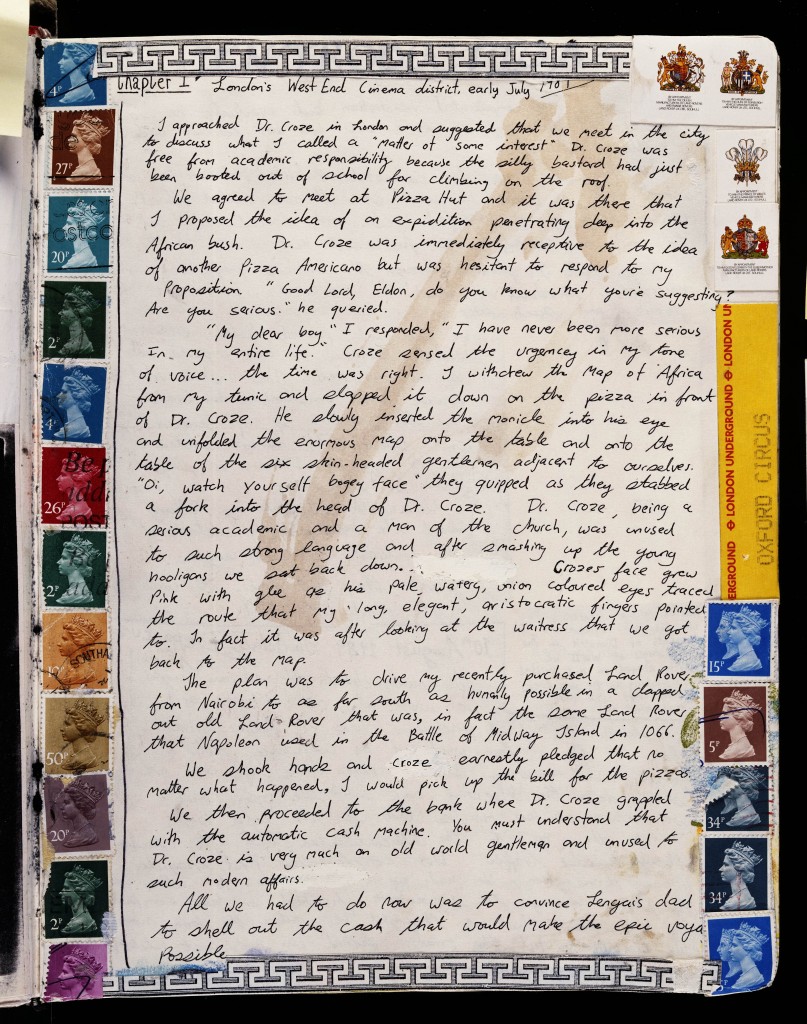 Chapter I London's West End Cinema district, early July
I approached Dr. Croze in London and suggested that we meet in the city
to discuss what I called a "matter of some interest" Dr. Croze was
free from academic responsibility because the silly bastard had just
been booted out of school for climbing on the roof.
We agreed to meet at Pizza Hut and it was there that
I proposed the idea of an expidition penetrating deep into the
African bush. Dr. Croze was immediately receptive to the idea
of another Pizza Americano but was hesitant to respond to my
Proposition. "Good Lord, Eldon, do you know what you're suggesting?
Are you serious." he queried.
"My dear boy" I responded, "I have never been more serious
In my entire life." Croze sensed the urgencey in my tone
of voice... the time was right. I withdrew the Map of Africa
from my tunic and slapped it down on the pizza in front
of Dr. Croze. He slowly inserted the monicle into his eye
and unfolded the enormous map onto the table and onto the
table of the six skin-headed gentlemen adjacent to ourselves.
"Oi, watch yourself bogey face" they quipped as they stabbed
a fork into the head of Dr. Croze. Dr. Croze, being a
serious academic and a man of the church, was unused
to such strong language and after smashing up the young
hooligans we sat back down... Crozes face grew
Pink with glee as his pale, watery, union coloured eyes traced
the route that my long, elegant, aristocratic fingers pointed
to. In fact it was after looking at the waitress that we got
back to the map.
The plan was to drive my recently purchased Land Rover
from Nairobi to as far south as humanly possible in a clapped
out old Land Rover that was, in fact the same Land Rover
that Napoleon used in the Battle of Midway Island in 1066.
We shook hands and Croze earnestly pledged that no
matter what happened, I would pick up the bill for the pizzas.
We then proceeded to the bank where Dr. Croze grappled
with the automatic cash machine. You must understand that
Dr. Croze is very much an old world gentleman and unused to
such modern affairs.
All we had to do now was to convince Lengai's dad
to shell out the cash that would make the epic voya
Possible
27P
20P
2P
26P
2P
50P
20P
2P
LONDON UNDERGROUND LONDON UN
OXFORD CIRCUS
15P
5P
34P
34P